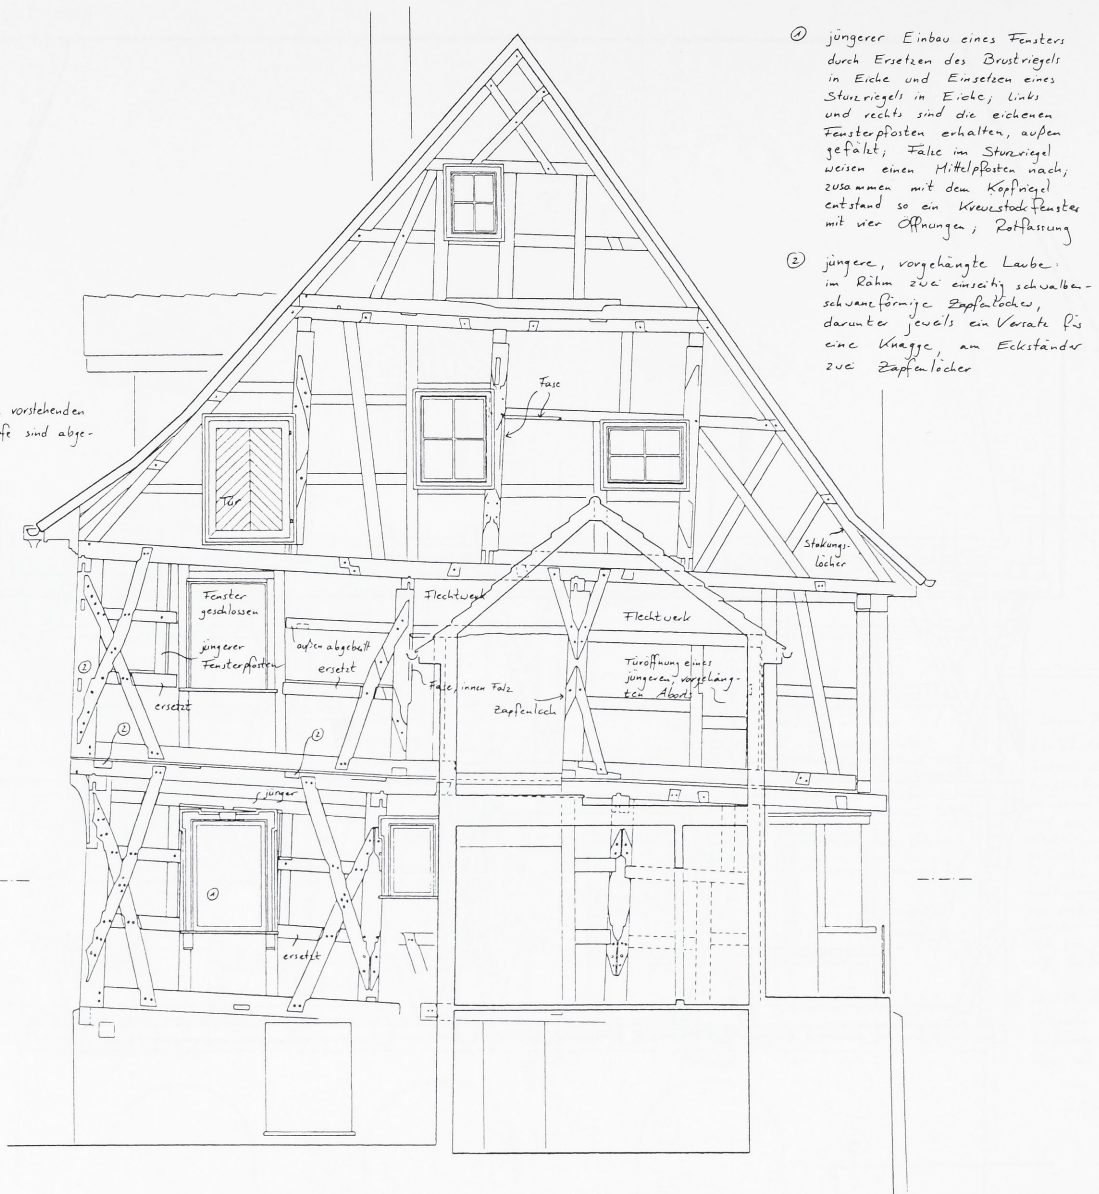 ① jüngerer Einbau eines Fensters
durch Ersetzen des Brustriegels
in Eiche und Einsetzen eines
Sturzriegels in Eiche; links
und rechts sind die eichenen
Fensterpfosten erhalten, außen
gefälzt; Fälze im Sturzriegel
weisen einen Mittelpfosten nach;
zusammen mit dem Kopfriegel
entstand so ein Kreuzstockfenster
mit vier Öffnungen; Rotfassung
② jüngere, vorgehängte Laube:
im Rähm zwei einseitig schwalben-
schwanzförmige Zapfenlöcher,
darunter jeweils ein Versatz für
eine Knagge, am Eckständer
zwei Zapfenlöcher
vorstehenden
fe sind abge-
Fase
Tür
Stakungs-
löcher
Fenster
geschlossen
Flechtwerk
Flechtwerk
jüngerer
Fensterpfosten
außen abgebeilt
ersetzt
②
ersetzt
Fase, innen Falz
Zapfenloch
Türöffnung eines
jüngeren, vorgehäng-
ten Aborts
②
②
jünger
①
ersetzt